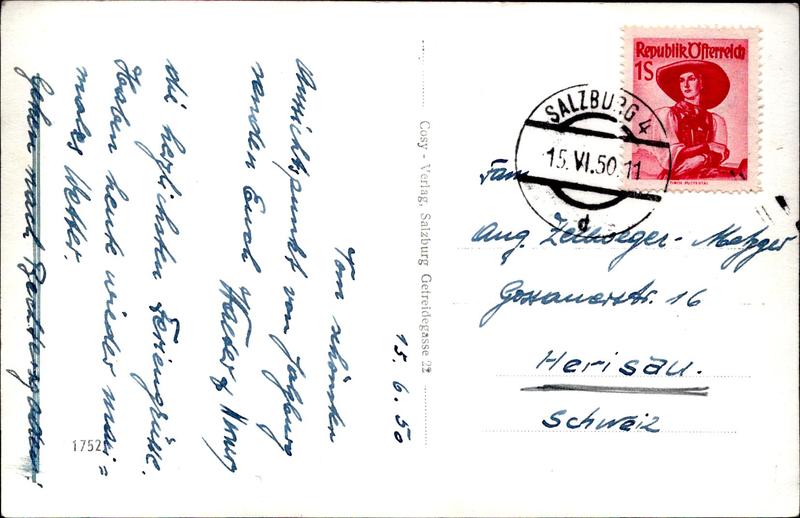 15.6.50
Vom schönsten
Aussichtspunkt von Salzburg
senden Euch
Walter &
die herzlichsten Feriengrüsse.
Haben heute wieder
males Wetter.
Gehen nach Berchtesgaden.
17521
Cosy - Verlag, Salzburg Getreidegasse 22
Republik Österreich
1S
SALZBURG 4
15.VI.50.11
d
Fam
Aug. Zellweger-Metzger
Gossauerstr. 16
Herisau.
Schweiz